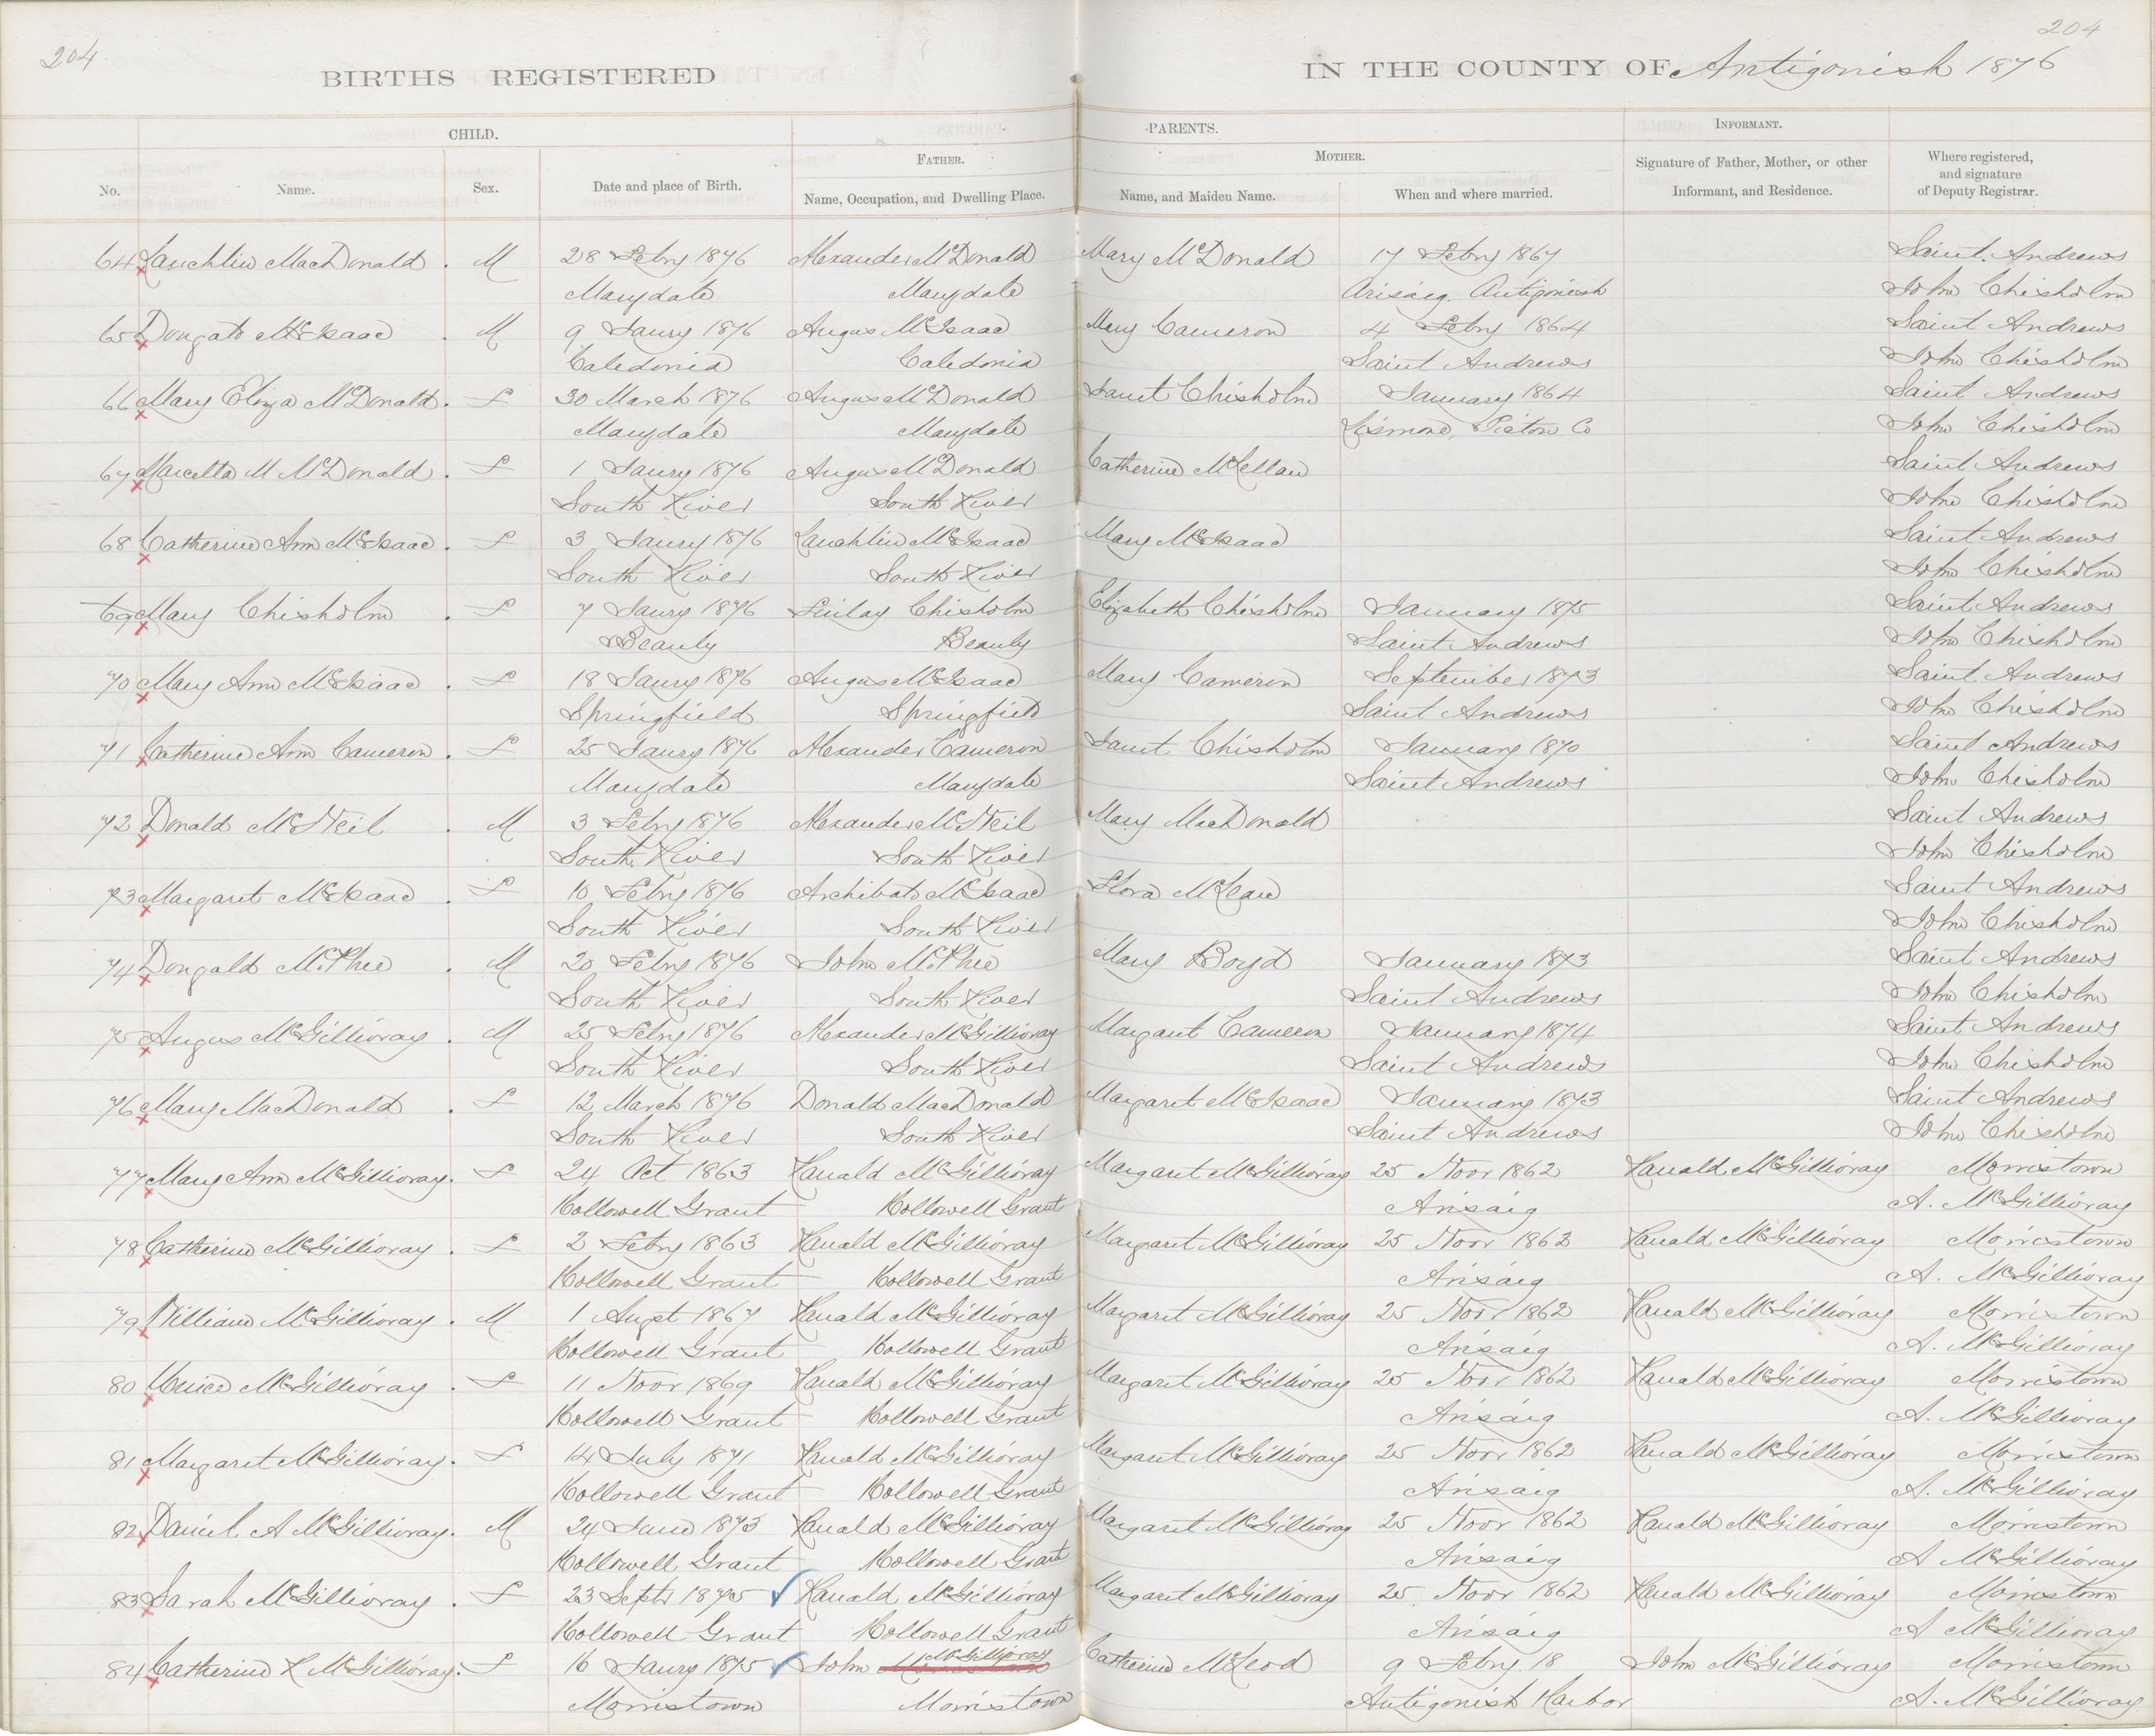 204
204
BIRTHS REGISTERED
IN THE COUNTY OF Antigonish 1876
CHILD.
PARENTS.
INFORMANT.
FATHER.
MOTHER.
No.
Name.
Sex.
Date and place of Birth.
Name, Occupation, and Dwelling Place.
Name, and Maiden Name.
When and where married.
Signature of Father, Mother, or other Informant, and Residence.
Where registered, and signature of Deputy Registrar.
64 Lauchlin MacDonald . M 28 Febry 1876 Alexander McDonald Mary McDonald 17 Febry 1867 Saint Andrews
Marydale Marydale Arisaig Antigonish John Chisholm
65 Dougald McIsaac . M 9 Jaury 1876 Angus McIsaac Mary Cameron 4 Febry 1864 Saint Andrews
Caledonia Caledonia Saint Andrews John Chisholm
66 Mary Eliza McDonald . F 30 March 1876 Angus McDonald Janet Chisholm January 1864 Saint Andrews
Marydale Marydale Lismore, Picton Co John Chisholm
67 Marcella M McDonald . F 1 Jaury 1876 Angus McDonald Catherine McLellan Saint Andrews
South River South River John Chisholm
68 Catherine Ann McIsaac . F 3 Jaury 1876 Lauchlin McIsaac Mary McIsaac Saint Andrews
South River South River John Chisholm
69 Mary Chisholm . F 7 Jaury 1876 Finlay Chisholm Elizabeth Chisholm January 1875 Saint Andrews
Beauly Beauly Saint Andrews John Chisholm
70 Mary Ann McIsaac . F 18 Jaury 1876 Angus McIsaac Mary Cameron September 1873 Saint Andrews
Springfield Springfield Saint Andrews John Chisholm
71 Catherine Ann Cameron . F 25 Jaury 1876 Alexander Cameron Janet Chisholm January 1870 Saint Andrews
Marydale Marydale Saint Andrews John Chisholm
72 Donald McNeil . M 3 Febry 1876 Alexander McNeil Mary MacDonald Saint Andrews
South River South River John Chisholm
73 Margaret McIsaac . F 10 Febry 1876 Archibald McIsaac Flora McLean Saint Andrews
South River South River John Chisholm
74 Dougald McPhee . M 20 Febry 1876 John McPhee Mary Boyd January 1873 Saint Andrews
South River South River Saint Andrews John Chisholm
75 Angus McGillivray . M 25 Febry 1876 Alexander McGillivray Margaret Cameron January 1874 Saint Andrews
South River South River Saint Andrews John Chisholm
76 Mary MacDonald . F 12 March 1876 Donald MacDonald Margaret McIsaac January 1873 Saint Andrews
South River South River Saint Andrews John Chisholm
77 Mary Ann McGillivray . F 24 Oct 1863 Ranald McGillivray Margaret McGillivray 25 Novr 1862 Ranald McGillivray Morristown
Hollowell Grant Hollowell Grant Arisaig A. McGillivray
78 Catherine McGillivray . F 2 Febry 1863 Ranald McGillivray Margaret McGillivray 25 Novr 1862 Ranald McGillivray Morristown
Hollowell Grant Hollowell Grant Arisaig A. McGillivray
79 William McGillivray . M 1 Augst 1867 Ranald McGillivray Margaret McGillivray 25 Novr 1862 Ranald McGillivray Morristown
Hollowell Grant Hollowell Grant Arisaig A. McGillivray
80 McGillivray . F 11 Novr 1869 Ranald McGillivray Margaret McGillivray 25 Novr 1862 Ranald McGillivray Morristown
Hollowell Grant Hollowell Grant Arisaig A. McGillivray
81 Margaret McGillivray . F 14 July 1871 Ranald McGillivray Margaret McGillivray 25 Novr 1862 Ranald McGillivray Morristown
Hollowell Grant Hollowell Grant Arisaig A. McGillivray
82 Daniel A McGillivray . M 24 June 1873 Ranald McGillivray Margaret McGillivray 25 Novr 1862 Ranald McGillivray Morristown
Hollowell Grant Hollowell Grant Arisaig A McGillivray
83 Sarah McGillivray . F 23 Septr 1875 Ranald McGillivray Margaret McGillivray 25 Novr 1862 Ranald McGillivray Morristown
Hollowell Grant Hollowell Grant Arisaig A McGillivray
84 Catherine L McGillivray . F 16 Jaury 1875 John McGillivray Catherine McLeod 9 Febry 18 John McGillivray Morristown
Morristown Morristown Antigonish Harbor A. McGillivray